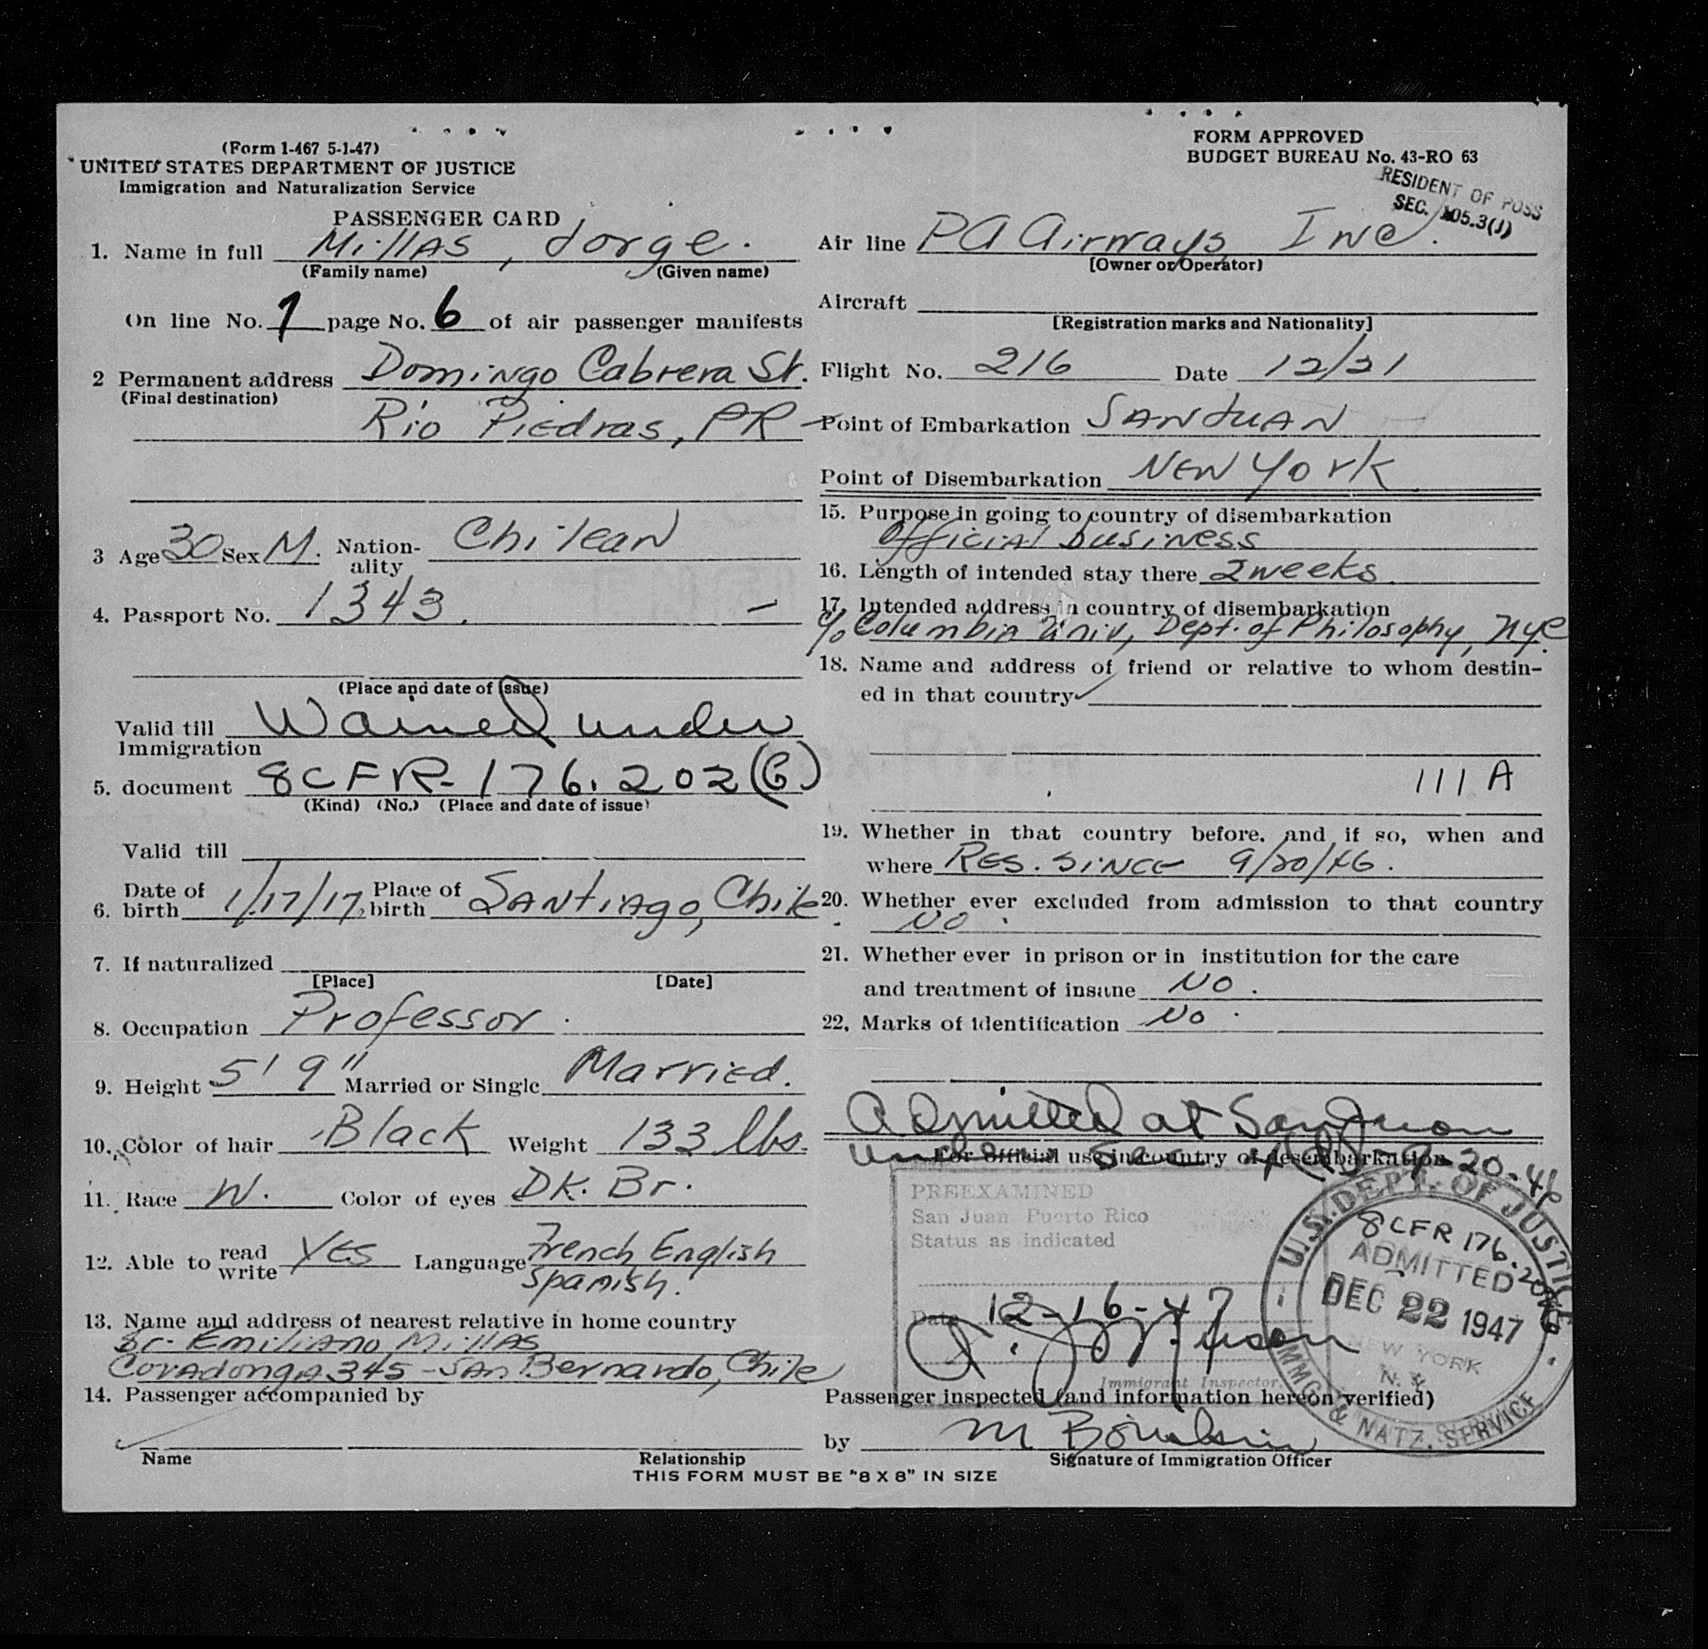 (Form 1-467 5-1-47)
UNITED STATES DEPARTMENT OF JUSTICE
Immigration and Naturalization Service
PASSENGER CARD
1. Name in full Millas, Jorge.
(Family name) (Given name)
On line No. 1 page No. 6 of air passenger manifests
2 Permanent address Domingo Cabrera St.
(Final destination)
Rio Piedras, PR
3 Age 30 Sex M. Nation-ality Chilean
4. Passport No. 1343.
(Place and date of issue)
Valid till Waived under
Immigration
5. document 8CFR-176.202(G)
(Kind) (No.) (Place and date of issue)
Valid till
6. Date of birth 1/17/17, Place of birth Santiago, Chile
7. If naturalized
[Place] [Date]
8. Occupation Professor.
9. Height 5' 9" Married or Single Married.
10. Color of hair Black Weight 133 lbs.
11. Race W. Color of eyes DK. Br.
12. Able to read write YES Language French English
Spanish.
13. Name and address of nearest relative in home country
Sr. Emiliano Millas
Covadonga 345 - San Bernardo, Chile
14. Passenger accompanied by
Name Relationship
THIS FORM MUST BE "8 X 8" IN SIZE
FORM APPROVED
BUDGET BUREAU No. 43-RO 63
RESIDENT OF POSS
SEC. 105.3(J)
Air line PA Airways Inc.
[Owner or Operator]
Aircraft
[Registration marks and Nationality]
Flight No. 216 Date 12/21
Point of Embarkation SAN JUAN
Point of Disembarkation NEW York
15. Purpose in going to country of disembarkation
Official business
16. Length of intended stay there 2 weeks
17. Intended address in country of disembarkation
c/o Columbia Univ, Dept. of Philosophy, NYC.
18. Name and address of friend or relative to whom destin-
ed in that country
111 A
19. Whether in that country before, and if so, when and
where RES. SINCE 9/20/46.
20. Whether ever excluded from admission to that country
NO
21. Whether ever in prison or in institution for the care
and treatment of insane NO.
22. Marks of identification NO.
Admitted at San Juan
under Sec 9-20-46
For official use in country of desembarkation
PREEXAMINED
San Juan Puerto Rico
Status as indicated
Date 12-16-47
Immigrant Inspector
U.S. DEPT. OF JUSTICE
8CFR 176.202
ADMITTED
DEC 22 1947
NEW YORK
N.Y.
IMMG. & NATZ. SERVICE
Passenger inspected (and information hereon verified)
by M
Signature of Immigration Officer